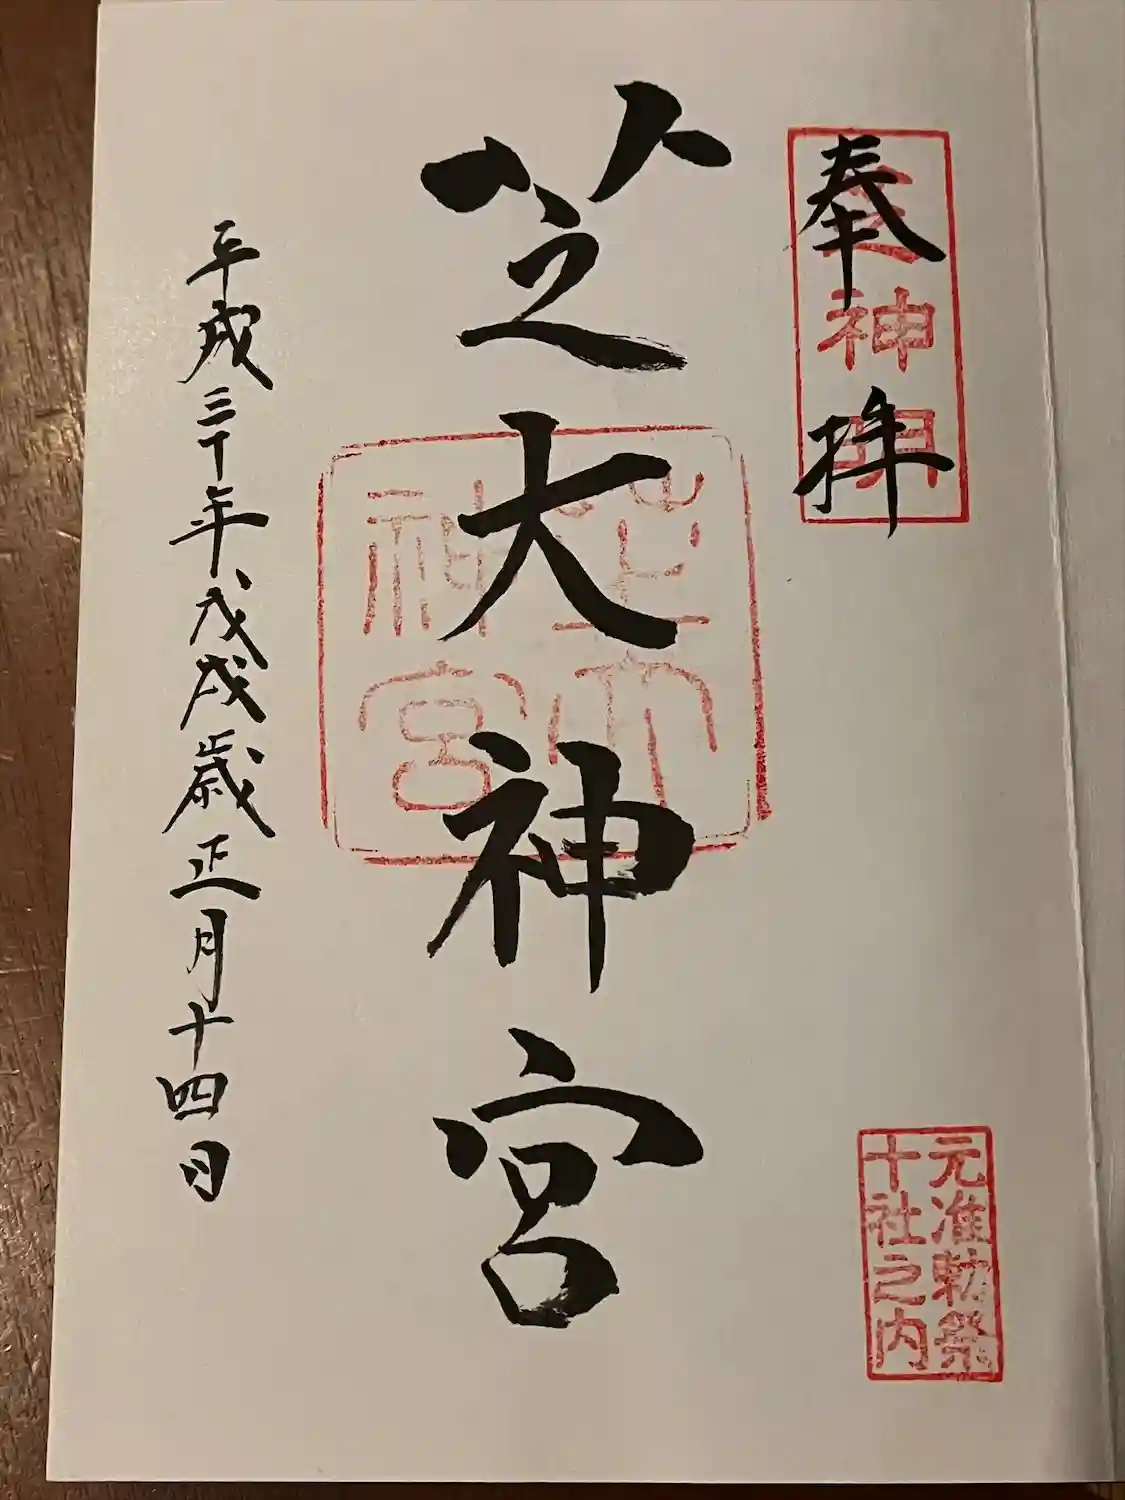 奉拝
芝神明
元准勅祭
十社之内
芝大神宮
芝大
神宮
平成三十年戊戌歳正月十四日